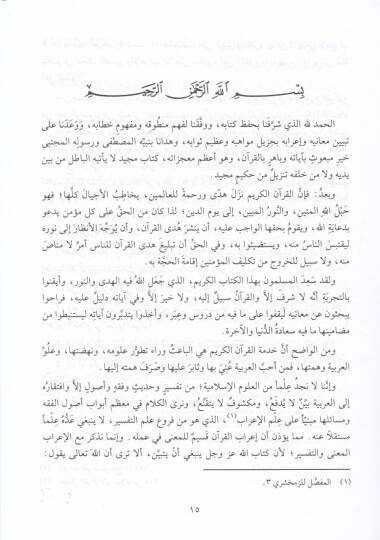 بسم الله الرحمن الرحيم
الحمد لله الذي شرّفنا بحفظ كتابه، ووفَّقَنا لفهم منطُوقه ومفهومِ خطابه، ووَعَدَنا على
تبيين معانيه وإعرابه بجزيل مواهبه وعظيم ثوابه، وهدانا بنبيِّه المصطفى ورسوله المجتبى
خيرِ مبعوثٍ بآياته وباهرٍ بالقرآن، وهو أعظم معجزاته، كتاب مجيد لا يأتيه الباطل من بين
يديه ولا من خلفه تنزيلٌ من حكيمٍ مجيد.
وبعدُ: فإنَّ القرآن الكريم نَزَلَ هدًى ورحمةً للعالمين، يخاطِبُ الأجيالَ كلَّها؛ فهو
حَبْلُ اللهِ المتين، والنُّورُ المبين، إلى يوم الدين؛ لذا كان من الحقِّ على كل مؤمن يدعو
بدعايةِ الله، ويقومُ بحقها الواجب عليه، أن ينشرَ هُدَى القرآن، وأن يُوَجِّهَ الأنظارَ إلى نوره
ليقتبسَ الناسُ منه، ويستضيئوا به، وفي الحقِّ أن تبليغَ هدى القرآن للناس أمرٌ لا مناصَ
منه، ولا سبيل للخروج من تكليف المؤمنين إقامةَ الحجَّة به.
ولقد سَعِدَ المسلمون بهذا الكتاب الكريم، الذي جَعَل اللهُ فيه الهدى والنور، وأيقنوا
بالتجربةِ أنَّه لا شرفَ إلاَّ والقرآنُ سبيلٌ إليه، ولا خيرَ إلاَّ وفي آياته دليلٌ عليه، فراحوا
يبحثون عن معانيه ليَقفوا على ما فيه من دروس وعِبَر، وأخذوا يتدبَّرون آياتِه ليستنبطوا من
مضامينها ما فيه سعادةُ الدُّنيا والآخرة.
ومن الواضح أنَّ خدمة القرآن الكريم هي الباعثُ وراء تطوُّرِ علومه، ونهضتِها، وعلُوِّ
العربية وهمتها، فمن أحبَّ العربية عُنِيَ بها وثابَر عليها وصَرَفَ همته إليها.
وإنَّنا لا نجدُ عِلْماً من العلوم الإسلامية؛ من تفسيرٍ وحديثٍ وفقهٍ وأصولٍ إلاَّ وافتقارُه
إلى العربية بيِّنٌ لا يُدفَعُ، ومكشوفٌ لا يتقنَّعُ، ونرى الكلام في معظم أبواب أصول الفقه
ومسائلها مبنيّاً على عِلْم الإعراب(١)، الذي هو من فروع علم التفسير، لا ينبغي عَدُّهُ عِلْماً
مستقلاً عنه. مما يؤذن أن إعراب القرآن قَسيمٌ للمعنى في عمله. وإنما نذكر مع الإعراب
المعنى والتفسير؛ لأن كتاب الله عز وجل ينبغي أنْ يتبيَّن، ألا ترى أن الله تعالى يقول:
(١) المفصَّل للزمخشري ٣.
١٥